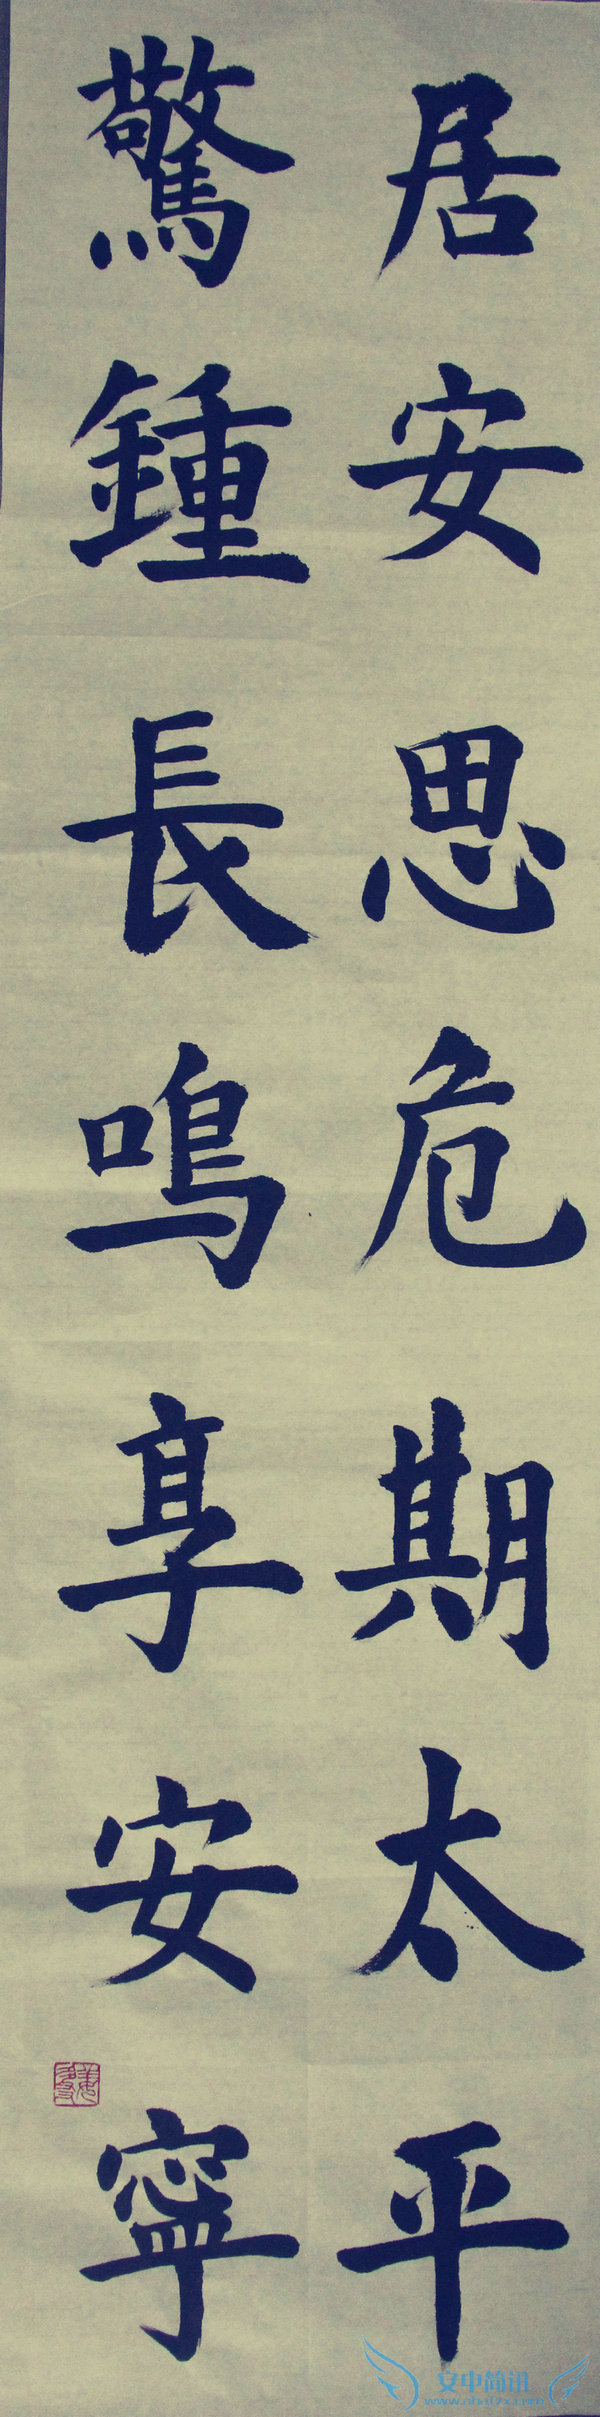 居安思危期太平
驚鍾長鳴享安寧
安中简讯